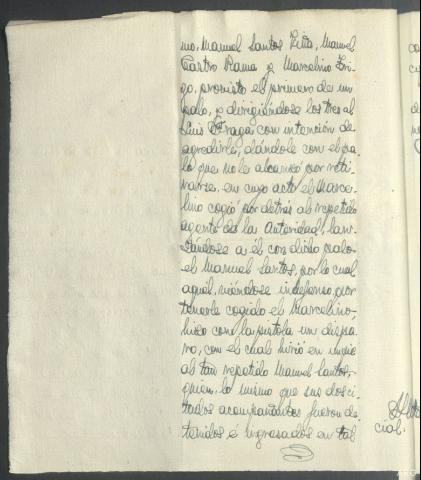 mo, Manuel Santos Piña, Manuel
Castro Rama y Marcelino Tri-
go, provisto el primero de un
palo, y dirigiéndose los tres al
Luis Fraga con intención de
agredirle, dándole con el pa-
lo que no le alcanzó por reti-
rarse, en cuyo acto el Marce-
lino cogió por detrás al repetido
agente de la Autoridad, lan-
zándose a él con dicho palo
el Manuel Santos, por lo cual
aquél, viéndose indefenso, por
tenerle cogido el Marcelino,
hizo con la pistola un dispa-
ro, con el cual hirió en un pie
al tan repetido Manuel Santos,
quien lo mismo que sus dos ci-
tados acompañantes fueron de-
tenidos é ingresados en tal
cial.